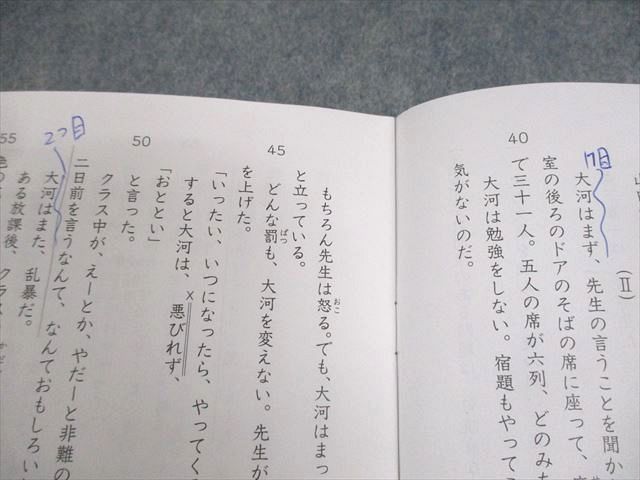 (Ⅱ)
1つ目
大河はまず、先生の言うことを聞か
室の後ろのドアのそばの席に座って、
40
で三十一人。五人の席が六列、どのみち
大河は勉強をしない。宿題もやってこ
気がないのだ。
もちろん先生は怒る。でも、大河はまっ
おこ
と立っている。
45
どんな罰も、大河を変えない。先生が
ばつ
を上げた。
「いったい、いつになったら、やってく
すると大河は、悪びれず、
X
「おととい」
50
と言った。
クラス中が、えーとか、やだーと非難の
二日前を言うなんて、なんておもしろい
2つ目
大河はまた、乱暴だ。
ある放課後、クラス
55